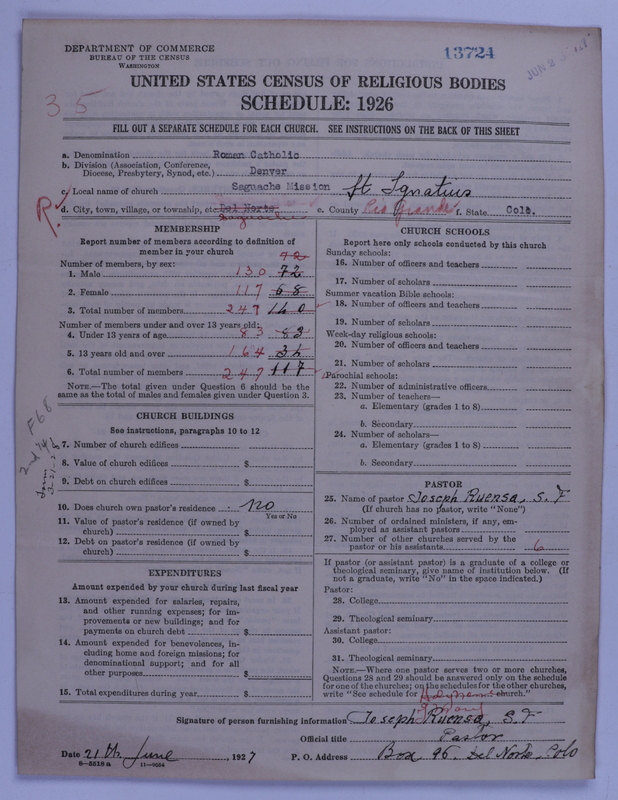 DEPARTMENT OF COMMERCE
BUREAU OF THE CENSUS
WASHINGTON
13724
JUN 2
35
UNITED STATES CENSUS OF RELIGIOUS BODIES
SCHEDULE: 1926
FILL OUT A SEPARATE SCHEDULE FOR EACH CHURCH. SEE INSTRUCTIONS ON THE BACK OF THIS SHEET
a. Denomination Roman Catholic
b. Division (Association, Conference, Diocese, Presbytery, Synod, etc.) Denver
c. Local name of church Saguache Mission St Ignatius
R.
d. City, town, village, or township, etc. Del Norte Saguache e. County Rio Grande f. State Colo.
MEMBERSHIP
Report number of members according to definition of member in your church
Number of members, by sex: 72
1. Male 130 72
2. Female 117 68
3. Total number of members 247 140
Number of members under and over 13 years old:
4. Under 13 years of age 83 83
5. 13 years old and over 164 34
6. Total number of members 247 117
NOTE.—The total given under Question 6 should be the same as the total of males and females given under Question 3.
CHURCH BUILDINGS
See instructions, paragraphs 10 to 12
7. Number of church edifices
8. Value of church edifices $
9. Debt on church edifices $
10. Does church own pastor's residence no
Yes or No
11. Value of pastor's residence (if owned by church) $
12. Debt on pastor's residence (if owned by church) $
EXPENDITURES
Amount expended by your church during last fiscal year
13. Amount expended for salaries, repairs, and other running expenses; for improvements or new buildings; and for payments on church debt $
14. Amount expended for benevolences, including home and foreign missions; for denominational support; and for all other purposes $
15. Total expenditures during year $
CHURCH SCHOOLS
Report here only schools conducted by this church
Sunday schools:
16. Number of officers and teachers
17. Number of scholars
Summer vacation Bible schools:
18. Number of officers and teachers
19. Number of scholars
Week-day religious schools:
20. Number of officers and teachers
21. Number of scholars
Parochial schools:
22. Number of administrative officers
23. Number of teachers—
a. Elementary (grades 1 to 8)
b. Secondary
24. Number of scholars—
a. Elementary (grades 1 to 8)
b. Secondary
PASTOR
25. Name of pastor Joseph Ruensa, S. F
(If church has no pastor, write "None")
26. Number of ordained ministers, if any, employed as assistant pastors
27. Number of other churches served by the pastor or his assistants 6
If pastor (or assistant pastor) is a graduate of a college or theological seminary, give name of institution below. (If not a graduate, write "No" in the space indicated.)
Pastor:
28. College
29. Theological seminary
Assistant pastor:
30. College
31. Theological seminary
NOTE.—Where one pastor serves two or more churches, Questions 28 and 29 should be answered only on the schedule for one of the churches; on the schedules for the other churches, write "See schedule for Holy Name church."
Signature of person furnishing information Joseph Ruensa, S. F
Official title Pastor
Date 21th June, 1927 P. O. Address Box 96. Del Norte, Colo
8—5518 a 11—9054